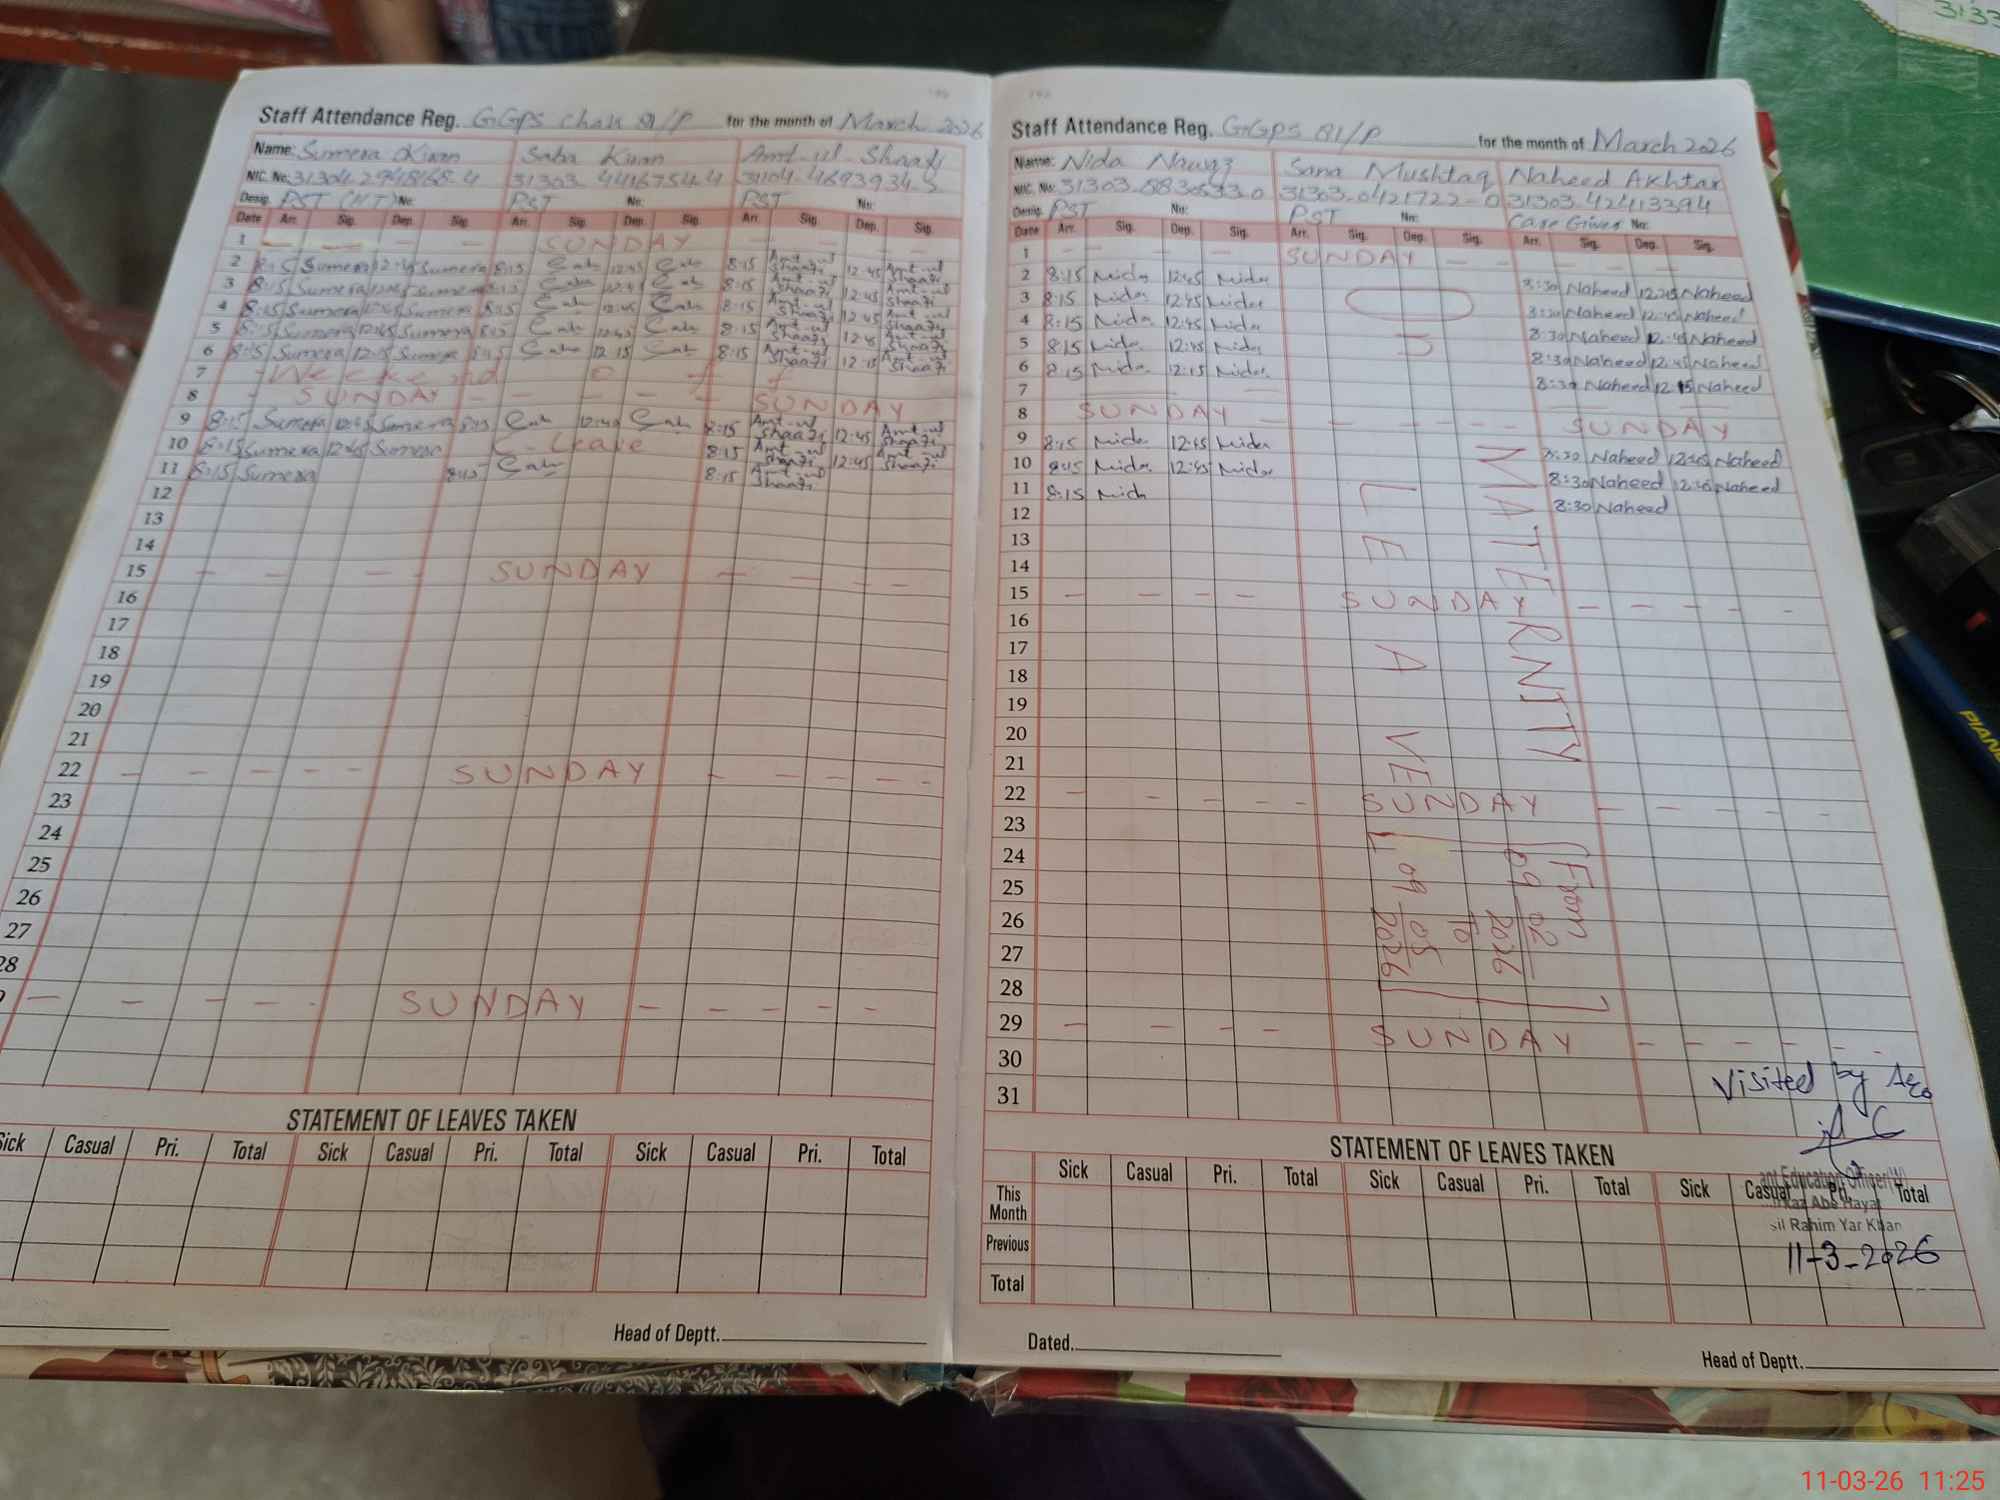 Staff Attendance Reg. GGPS Chak 81/P for the month of March 2026
Name: Sumera Kiran Saba Kiran Amt-ul-Shaafi
NIC. No: 31304-2948168-4 31303-4416754-4 31104-4693934-5
Desig. PST (HT) No: PST No: PST No:
Date Arr. Sig. Dep. Sig. Arr. Sig. Dep. Sig. Arr. Sig. Dep. Sig.
1 — — — — SUNDAY — — —
2 8:15 Sumera 12:45 Sumera 8:15 12:45 8:15 Amt-ul Shaafi 12:45 Amt-ul Shaafi
3 8:15 Sumera 12:45 Sumera 8:15 12:45 8:15 Amt-ul Shaafi 12:45 Amt-ul Shaafi
4 8:15 Sumera 12:45 Sumera 8:15 12:45 8:15 Amt-ul Shaafi 12:45 Amt-ul Shaafi
5 8:15 Sumera 12:45 Sumera 8:15 12:45 8:15 Amt-ul Shaafi 12:45 Amt-ul Shaafi
6 8:15 Sumera 12:15 Sumera 8:15 12:15 8:15 Amt-ul Shaafi 12:15 Amt-ul Shaafi
7 - Weekend off
8 - SUNDAY - - - - - SUNDAY
9 8:15 Sumera 12:45 Sumera 8:15 12:45 8:15 Amt-ul Shaafi 12:45 Amt-ul Shaafi
10 8:15 Sumera 12:45 Sumera C-Leave 8:15 Amt-ul Shaafi 12:45 Amt-ul Shaafi
11 8:15 Sumera 8:15 8:15 Amt-ul Shaafi
12
13
14
15 — — — - SUNDAY — — — —
16
17
18
19
20
21
22 — — — — — SUNDAY — — — — —
23
24
25
26
27
28
— — — — - SUNDAY — — — — —
STATEMENT OF LEAVES TAKEN
Sick Casual Pri. Total Sick Casual Pri. Total Sick Casual Pri. Total
Head of Deptt.
Staff Attendance Reg. GGPS 81/P for the month of March 2026
Name: Nida Nawaz Sana Mushtaq Naheed Akhtar
NIC. No: 31303-5830533-0 31303-0421722-0 31303-42413394
Desig. PST No: PST No: Care Giver No:
Date Arr. Sig. Dep. Sig. Arr. Sig. Dep. Sig. Arr. Sig. Dep. Sig.
1 — — — — SUNDAY — — — — —
2 8:15 Nida 12:45 Nida 8:30 Naheed 12:45 Naheed
3 8:15 Nida 12:45 Nida 8:30 Naheed 12:45 Naheed
4 8:15 Nida 12:45 Nida 8:30 Naheed 12:45 Naheed
5 8:15 Nida 12:45 Nida 8:30 Naheed 12:45 Naheed
6 8:15 Nida 12:15 Nida 8:30 Naheed 12:15 Naheed
7
8 SUNDAY — — — — — SUNDAY
9 8:15 Nida 12:45 Nida 8:30 Naheed 12:45 Naheed
10 8:15 Nida 12:45 Nida 8:30 Naheed 12:45 Naheed
11 8:15 Nida 8:30 Naheed
12
13
14
15 — — — — SUNDAY — — — — -
16
17
18
19
20
21
22 — — — — - SUNDAY — — — — -
23
24
25
26
27
28
29 — — — — SUNDAY — — — — — -
30
31
ON MATERNITY
LEAVE
(From
09-02
2026
To
09-05
2026)
Visited by AEO
ant Education Officer(W)
Abe Hayat
sil Rahim Yar Khan
11-3-2026
STATEMENT OF LEAVES TAKEN
Sick Casual Pri. Total Sick Casual Pri. Total Sick Casual Pri. Total
This Month
Previous
Total
Dated.
Head of Deptt.
PIANO
11-03-26 11:25